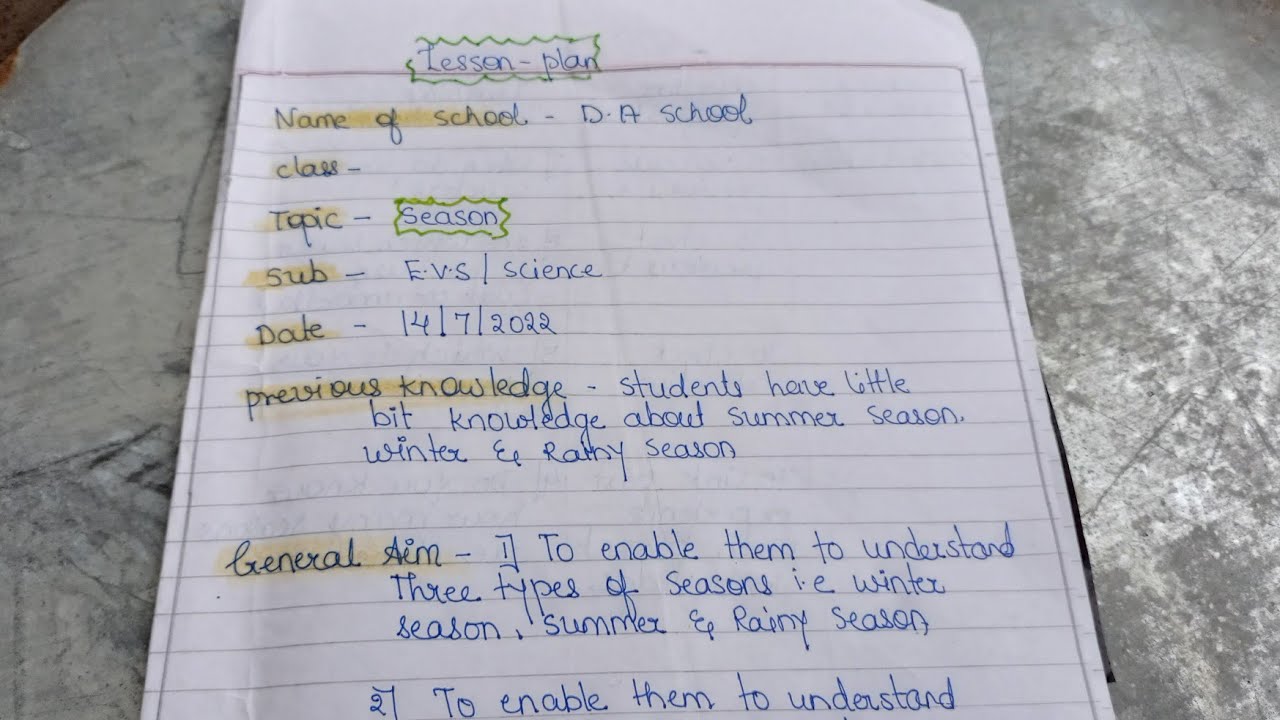 Lesson-plan
Name of school - D.A school
class -
Topic - Season
Sub - E.V.S / science
Date - 14/7/2022
previous knowledge - students have little
bit knowledge about summer season.
winter & Rainy season
General Aim - 1] To enable them to understand
Three types of seasons i.e winter
season, summer & Rainy season
2] To enable them to understand